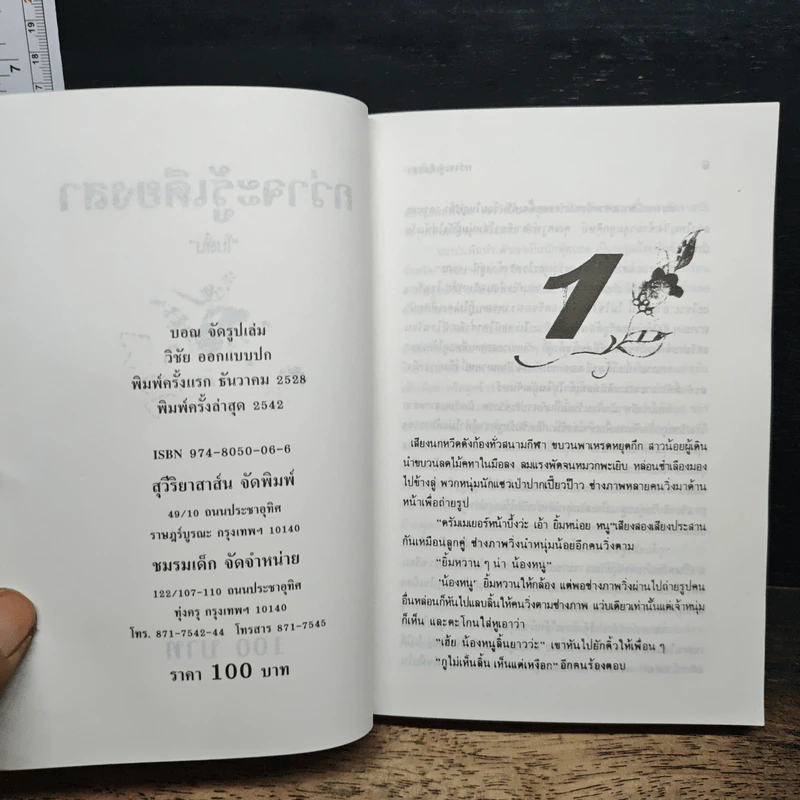 บอณ จัดรูปเล่ม
วิชัย ออกแบบปก
พิมพ์ครั้งแรก ธันวาคม 2528
พิมพ์ครั้งล่าสุด 2542
ISBN 974-8050-06-6
สุวีริยาสาส์น จัดพิมพ์
49/10 ถนนประชาอุทิศ
ราษฎร์บูรณะ กรุงเทพฯ 10140
ชมรมเด็ก จัดจำหน่าย
122/107-110 ถนนประชาอุทิศ
ทุ่งครุ กรุงเทพฯ 10140
โทร. 871-7542-44 โทรสาร 871-7545
ราคา 100 บาท
1
เสียงนกหวีดดังก้องทั่วสนามกีฬา ขบวนพาเหรดหยุดกึก สาวน้อยผู้เดิน
นำขบวนลดไม้คทาในมือลง ลมแรงพัดจนหมวกพะเยิบ หล่อนชำเลืองมอง
ไปข้างลู่ พวกหนุ่มนักแซวเป่าปากเปี๊ยวป๊าว ช่างภาพหลายคนวิ่งมาด้าน
หน้าเพื่อถ่ายรูป
"ดรัมเมเยอร์หน้าบึ้งว่ะ เอ้า ยิ้มหน่อย หนู"เสียงสองเสียงประสาน
กันเหมือนลูกคู่ ช่างภาพวิ่งนำหนุ่มน้อยอีกคนวิ่งตาม
"ยิ้มหวาน ๆ น่า น้องหนู"
'น้องหนู' ยิ้มหวานให้กล้อง แต่พอช่างภาพวิ่งผ่านไปถ่ายรูปคน
อื่นหล่อนก็หันไปแลบลิ้นให้คนวิ่งตามช่างภาพ แว่บเดียวเท่านั้นแต่เจ้าหนุ่ม
ก็เห็น และตะโกนใส่หูเอาว่า
"เฮ้ย น้องหนูลิ้นยาวว่ะ" เขาหันไปยักคิ้วให้เพื่อน ๆ
"กูไม่เห็นลิ้น เห็นแต่เหงือก" อีกคนร้องตอบ